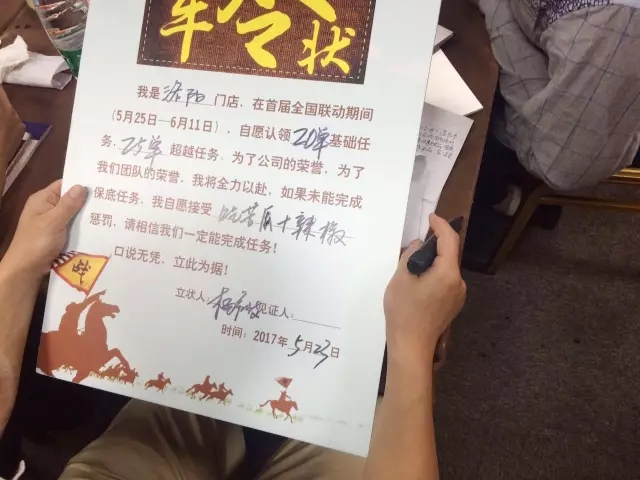 军令状
我是洛阳门店，在首届全国联动期间
（5月25日—6月11日），自愿认领20单基础任
务，25单超越任务，为了公司的荣誉，为了
我们团队的荣誉，我将全力以赴，如果未能完成
保底任务，我自愿接受吃苦瓜+辣椒
惩罚，请相信我们一定能完成任务！
口说无凭，立此为据！
立状人：见证人：
时间：2017年5月23日